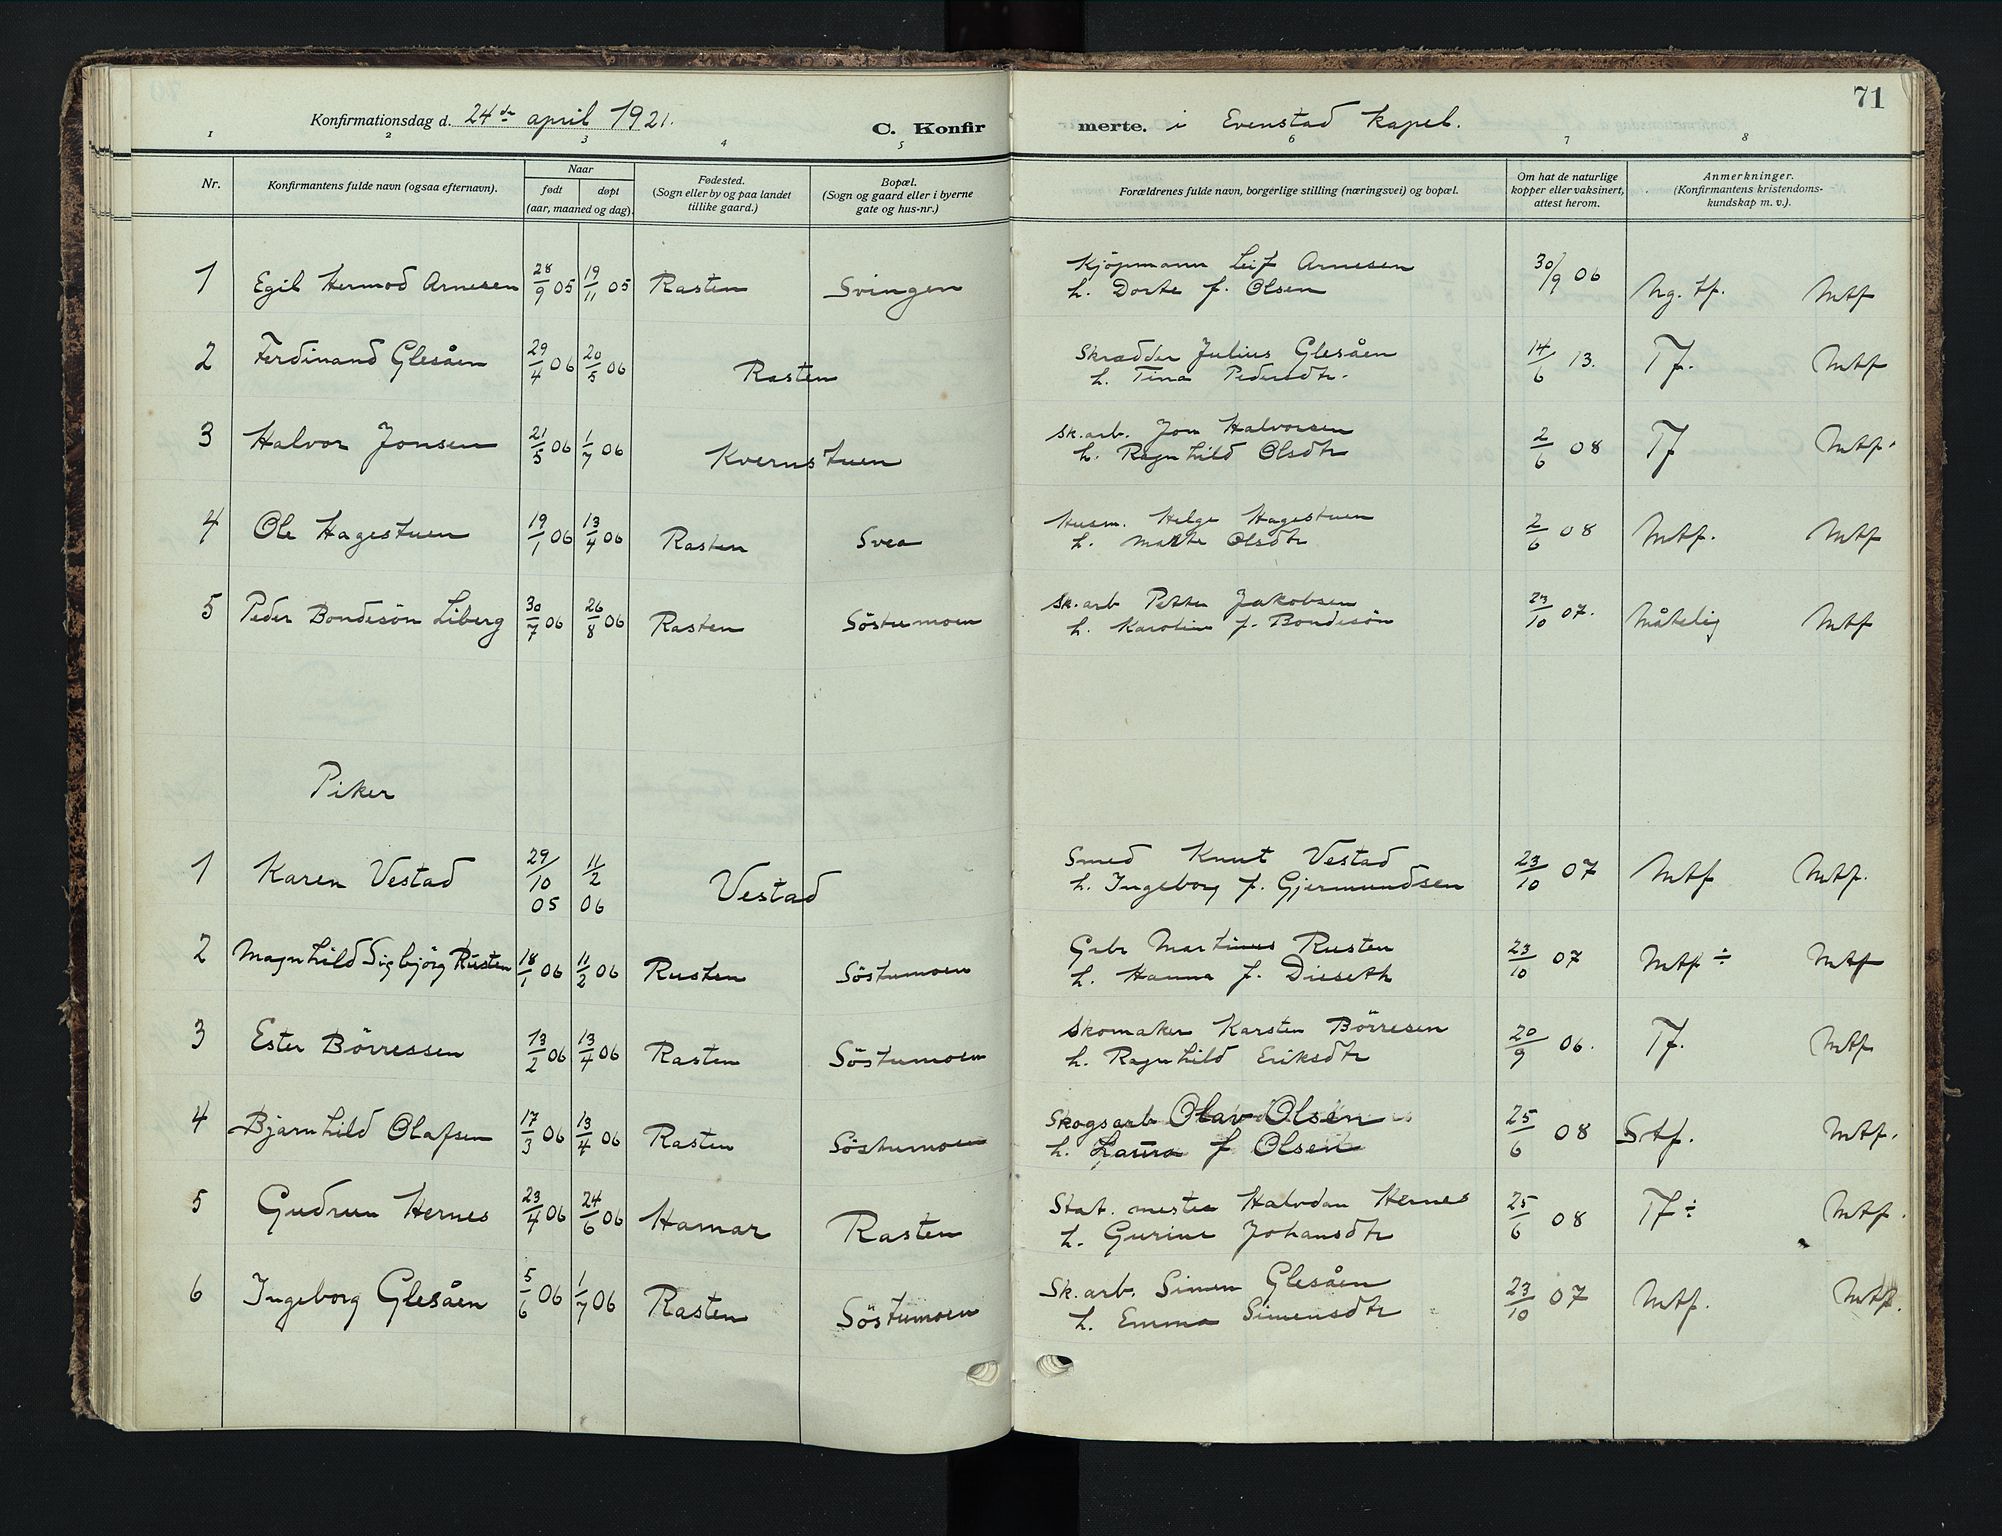 71
Konfirmationsdag d. 24de april 1921. C. Konfirmerte. i Evenstad kapel.
1 2 3 4 5 6 7 8
Nr. Konfirmantens fulde navn (ogsaa efternavn). Naar født døpt (aar, maaned og dag). Fødested. (Sogn eller by og paa landet tillike gaard.) Bopæl. (Sogn og gaard eller i byerne gate og hus-nr.) Forældrenes fulde navn, borgerlige stilling (næringsvei) og bopæl. Om hat de naturlige kopper eller vaksinert, attest herom. Anmerkninger. (Konfirmantens kristendomskundskap m. v.).
1 Egil Hermod Arnesen 28/9 05 19/11 05 Rasten Svingen Kjöpmann Leif Arnesen 30/9 06 Ng. tf. Mtf
h. Dorte f. Olsen
2 Ferdinand Glesåen 29/4 06 20/5 06 Rasten Skrædder Julius Glesåen 14/6 13. Tf. Mtf
h. Tina Pedersdtr.
3 Halvor Jonsen 21/5 06 1/7 06 Kvernstuen Sk.arb. Jon Halvorsen 2/6 08 Tf Mtf.
h. Ragnhild Olsdtr
4 Ole Hagestuen 19/1 06 13/4 06 Rasten Svea Husm. Helge Hagestuen 2/6 08 Mtf. Mtf
h. Marte Olsdtr
5 Peder Bondesön Liberg 30/7 06 26/8 06 Rasten Söstumoen Sk.arb Petter Jakobsen 23/10 07. Måtelig Mtf
h. Karolin f. Bondesön
Piker
1 Karen Vestad 29/10 05 11/2 06 Vestad Smed Knut Vestad 23/10 07 Mtf Mtf.
h. Ingeborg f. Gjermundsen
2 Magnhild Sigbjörg Rusten 18/1 06 11/2 06 Rusten Söstumoen Gabr Martinus Rusten 23/10 07 Mtf ÷ Mtf
h. Hanna f. Dieseth
3 Ester Börressen 13/2 06 13/4 06 Rasten Söstumoen Skomaker Karsten Börresen 20/9 06. Tf. Mtf
h. Ragnhild Eriksdtr
4 Bjarnhild Olafsen 17/3 06 13/4 06 Rasten Söstumoen Skogsarb Olav Olsen 25/6 08 Stf. Mtf.
h. Laura f Olsen
5 Gudrun Hernes 23/4 06 24/6 06 Hamar Rasten Stat. mester Halvdan Hernes 25/6 08 Tf ÷ Mtf.
h. Gurine Johansdtr
6 Ingeborg Glesåen 5/6 06 1/7 06 Rasten Söstumoen Sk.arb. Simen Glesåen 23/10 07 Mtf. Mtf.
h. Emma Simensdtr